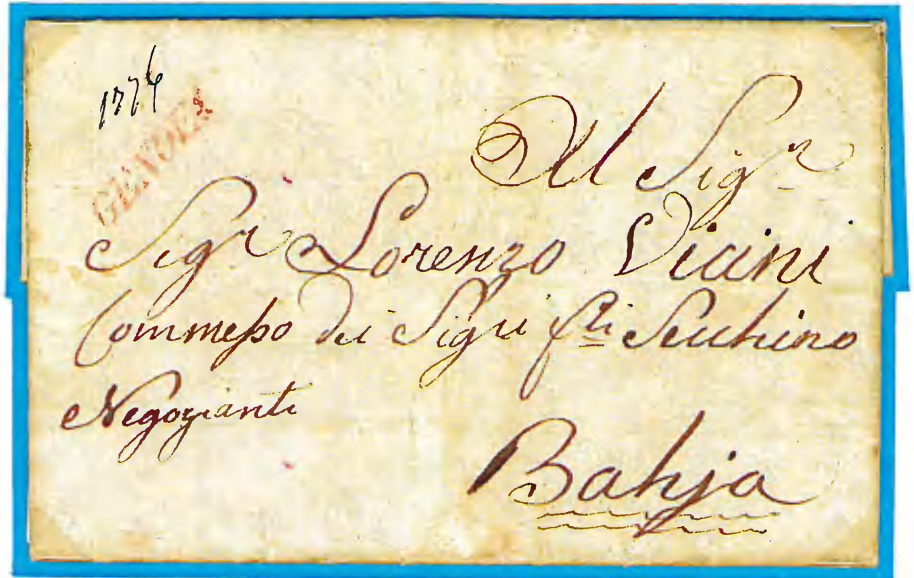 1776
GENOVA
Al Sigr
Sigr Lorenzo Viani
Commesso dei Sigri flli
Negozianti
Bahja